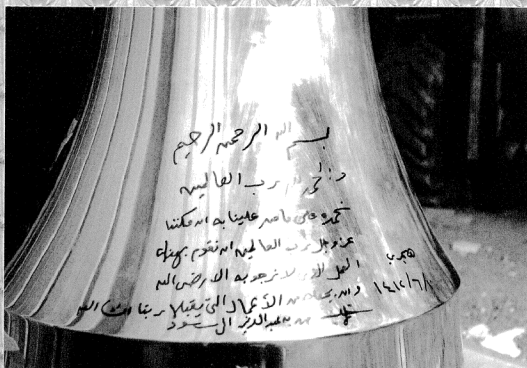 بسم الله الرحمن الرحيم
والحمد لله رب العالمين
نحمده على ما من علينا به ان مكننا
عز وجل رب العالمين ان نقوم بهذا
العمل الذي لا نرجو به الا رضى الله
وان يجعله من الأعمال التي يقبلها ربنا ان شاء الله
فهد بن عبدالعزيز ال سعود